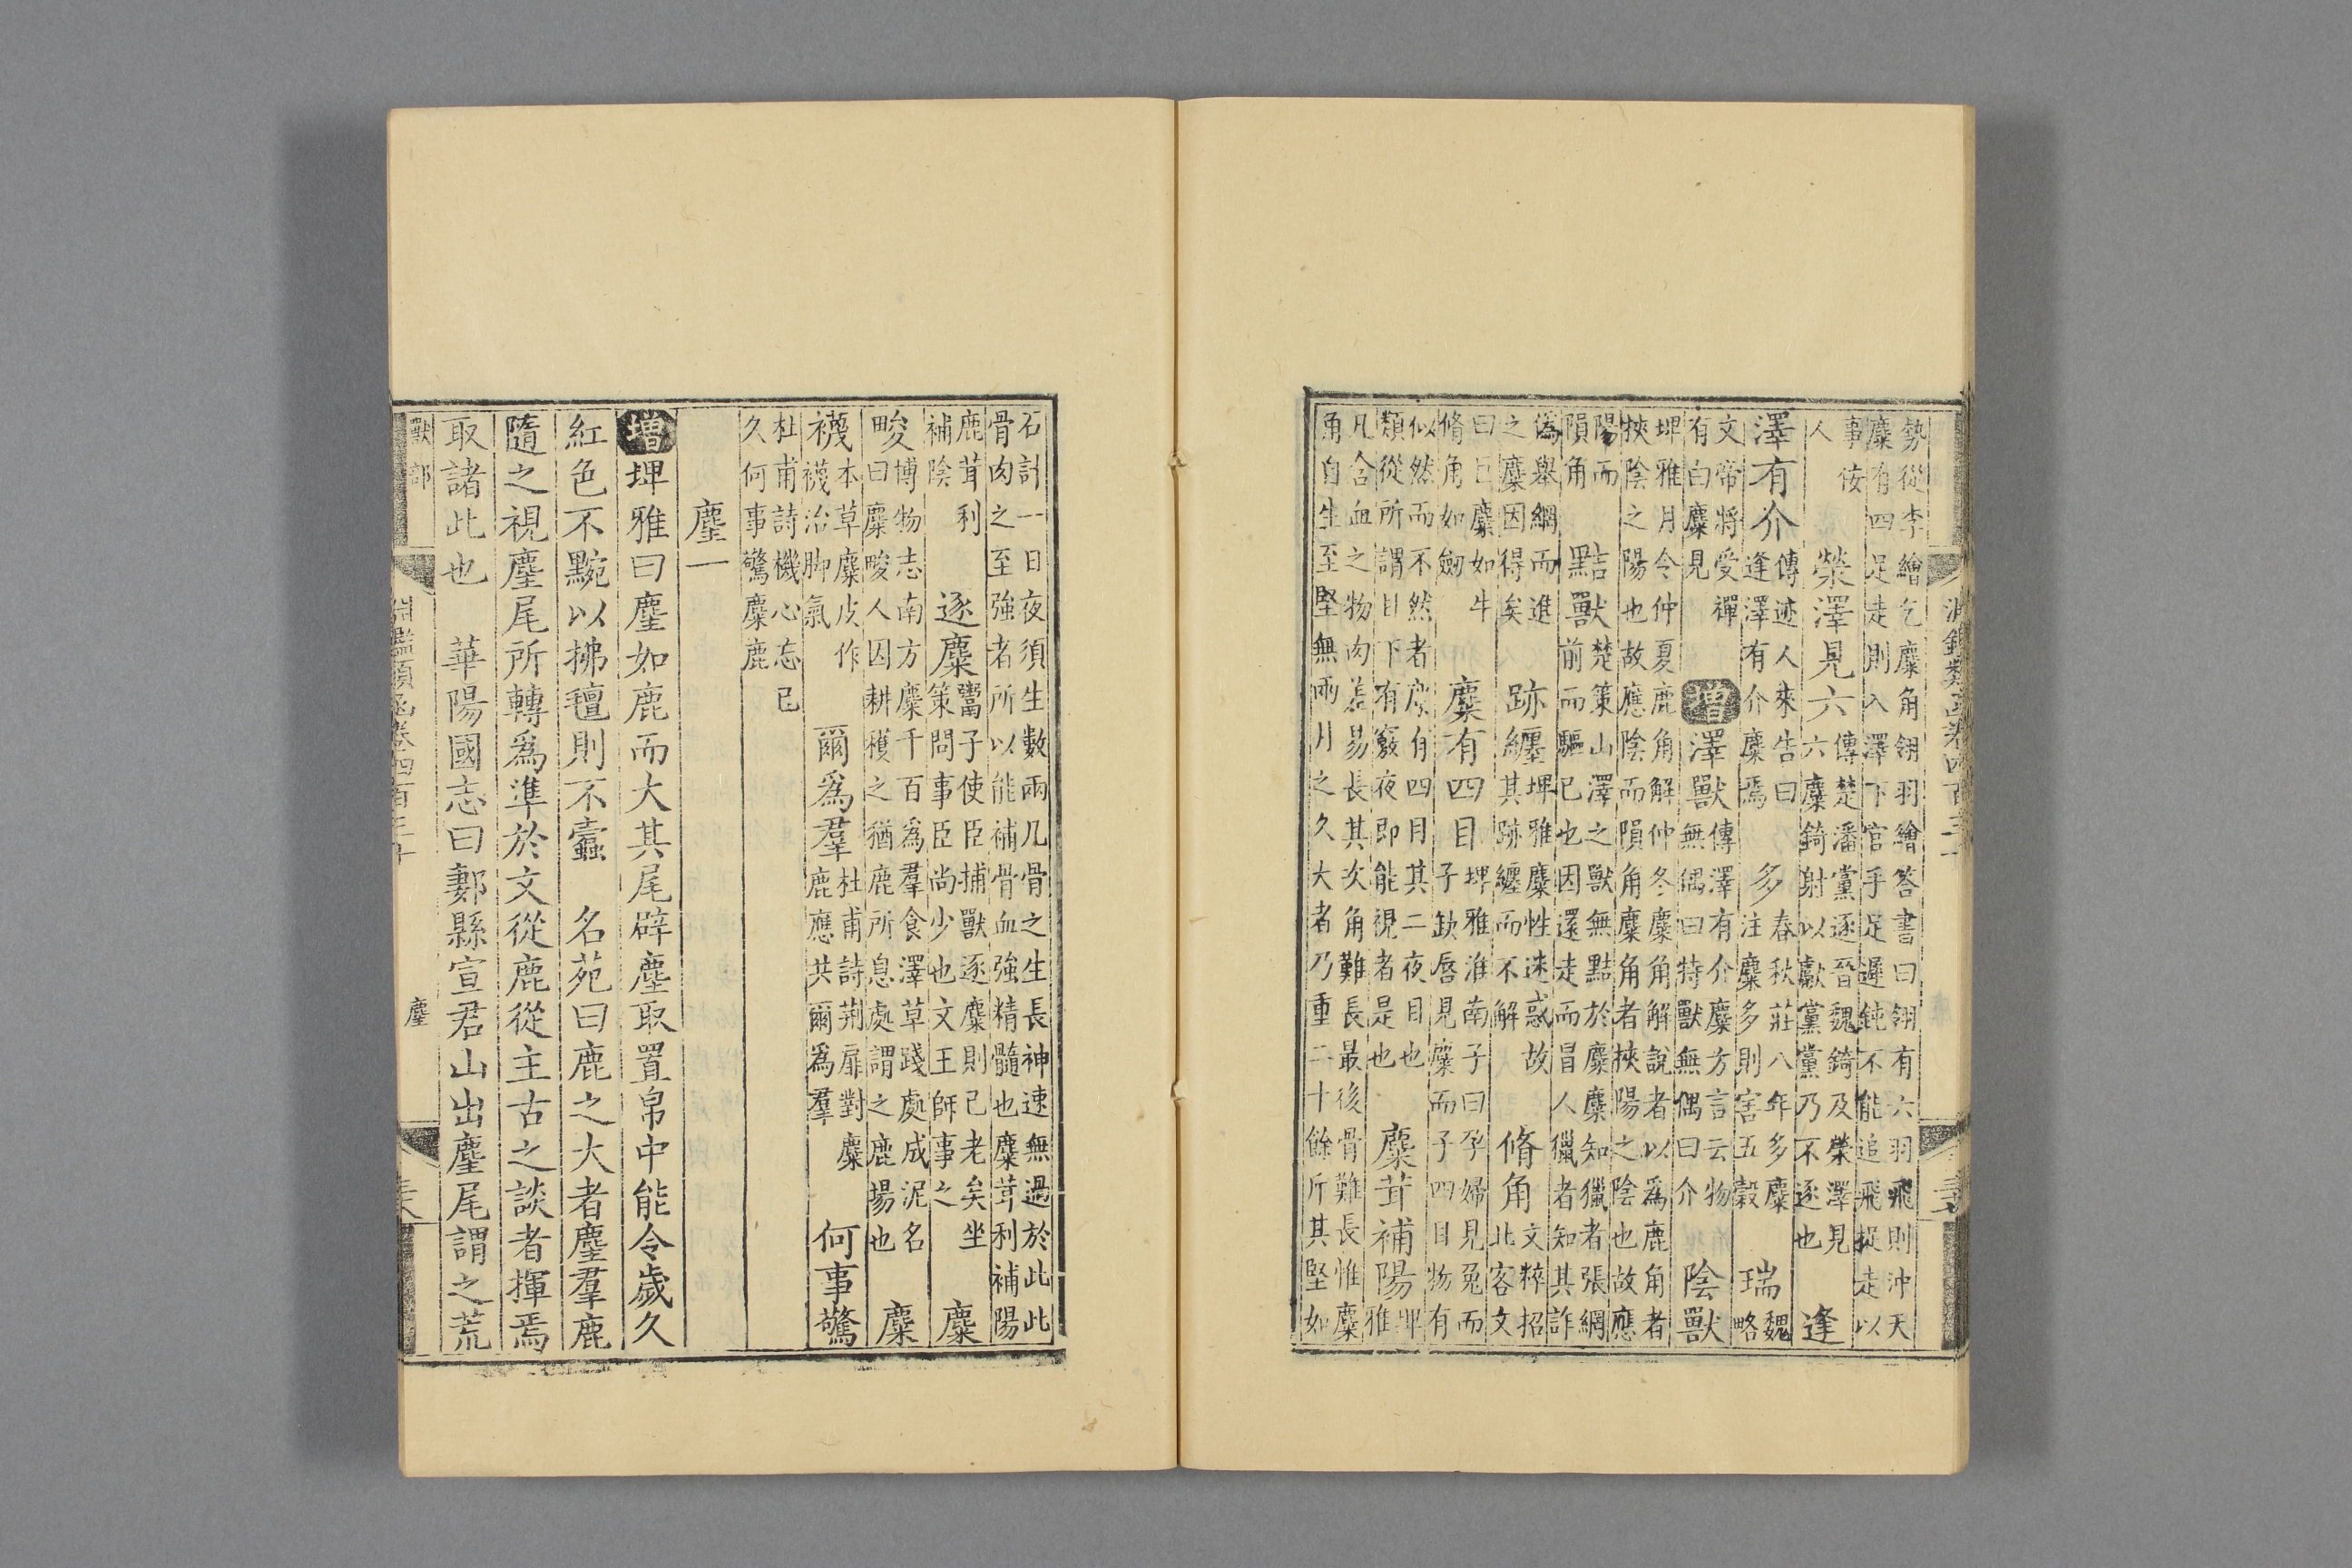 淵鑑類函卷四百三十
勢從李繪乞麋角翎羽繪答書曰翎有六羽飛則沖天
麋有四足走則入澤下官手足遲鈍不能追飛捉走以
事佞人 滎澤見六 傳楚潘黨逐晉魏錡及滎澤見六麋錡射以獻黨黨乃不逐也 逢
澤有介 傳迹人來告曰逢澤有介麋焉 多 春秋莊八年多麋注麋多則害五穀 瑞 魏略
文帝將受禪有白麋見 增 澤獸 傳澤有介麋方言云物無偶曰特獸無偶曰介 陰獸
埤雅月令仲夏鹿角解仲冬麋角解說者以爲鹿角者
挾陰之陽也故應陰而隕角麋角者挾陽之陰也故應
陽而隕角 黠獸 楚策山澤之獸無黠於麋麋知獵者張網前而驅已也因還走而冒人獵者知其詐
偽舉網而進之麋因得矣 跡纏 埤雅麋性速惑故其跡纏而不解 脩角 文粹招北客文
曰巨麋如牛脩角如劒 麋有四目 埤雅淮南子曰孕婦見兔而子缺唇見麋而子四目物有
似然而不然者麋有四目其二夜目也類從所謂目下有竅夜即能視者是也 麋茸補陽 埤雅
凡含血之物肉差易長其次角難長最後骨難長惟麋
角自生至堅無兩月之久大者乃重二十餘斤其堅如
石計一日夜須生數兩凡骨之生長神速無過於此此
骨肉之至強者所以能補骨血強精髓也麋茸利補陽
鹿茸利補陰 逐麋 鬻子使臣捕獸逐麋則已老矣坐策問事臣尚少也文王師事之 麋
畯 博物志南方麋千百爲羣食澤草踐處成泥名曰麋畯人因耕穫之猶鹿所息處謂之鹿場也 麋
襪 本草麋皮作襪治脚氣 爾爲羣 杜甫詩荆扉對麋鹿應共爾爲羣 何事驚
麋 杜甫詩機心忘已久何事驚麋鹿
麈一
增 埤雅曰麈如鹿而大其尾辟塵取置帛中能令歲久
紅色不黦以拂氊則不蠧 名苑曰鹿之大者麈羣鹿
隨之視麈尾所轉爲準於文從鹿從主古之談者揮焉
取諸此也 華陽國志曰鄚縣宣君山出麈尾謂之荒
獸部 淵鑑類函卷四百三十 麈